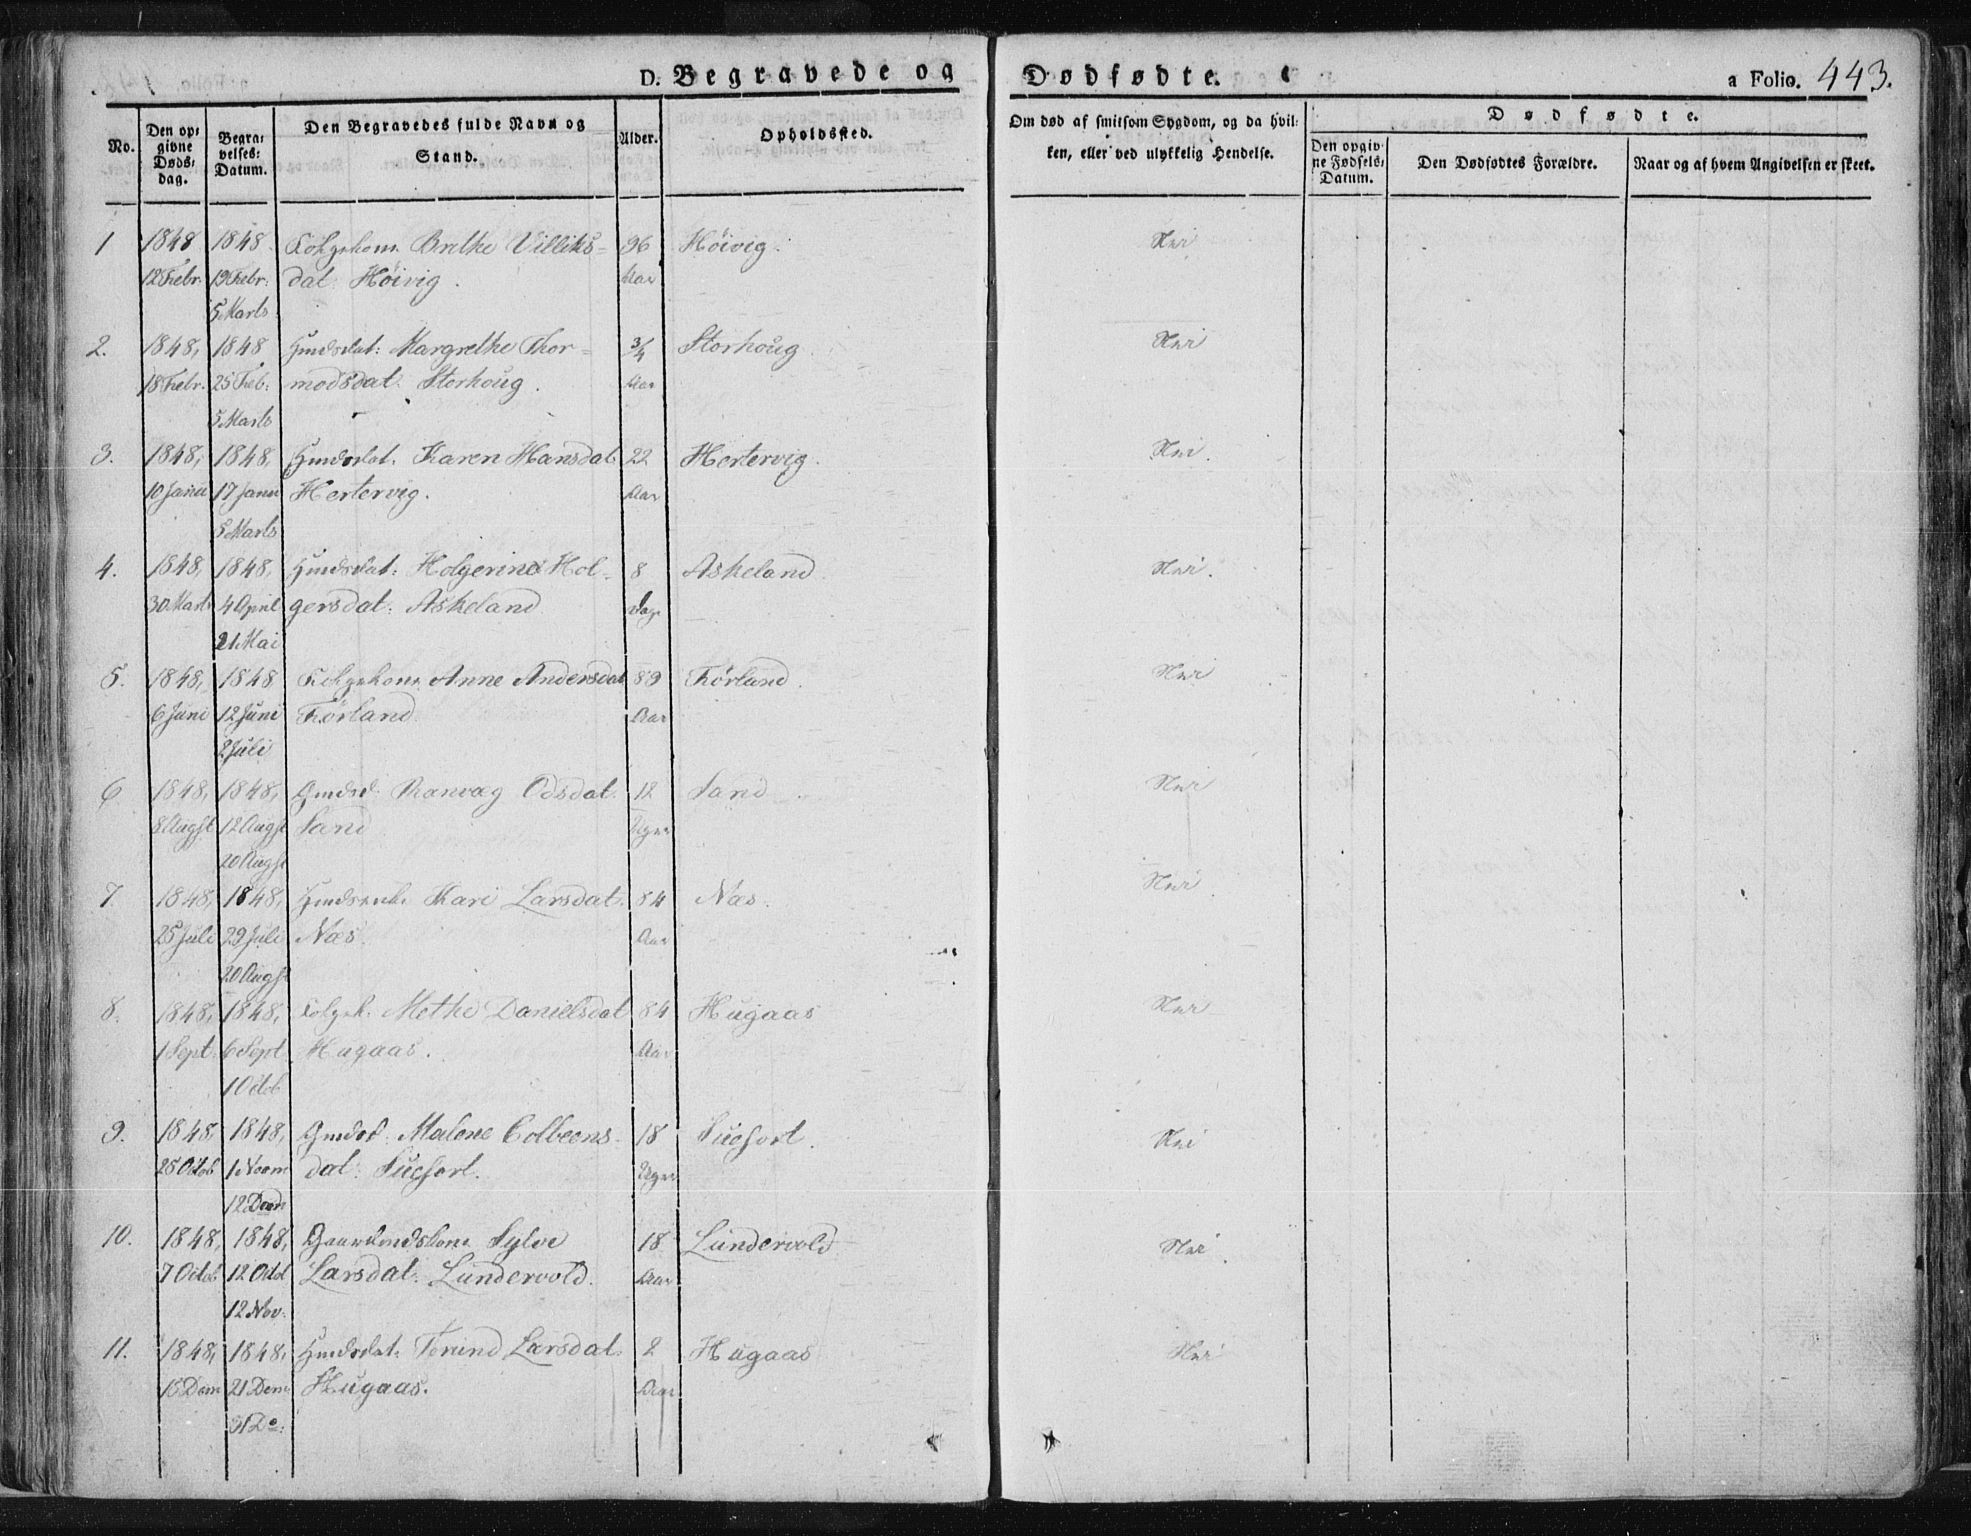 D. Begravede og Dødfødte.
a Folio. 443.
No.
Den opgivne Døds-dag.
Begravelses-Datum.
Den Begravedes fulde Navn og Stand.
Alder.
Opholdssted.
Om død af smitsom Sygdom, og da hvilken, eller ved ulykkelig Hendelse.
Dødfødte.
Den opgivne Fødsels-Datum.
Den Dødfødtes Forældre.
Naar og af hvem Angivelsen er skeet.
1 1848 1848 Brethe Villiks- 96 Høivig. Nei
12 Febr. 19 Febr: dat: Høivig. Aar
5 Marts
2. 1848, 1848 Margrethe Thor= 3/4 Storhoug. Nei
18 Febr. 25 Feb: modsdat: Storhoug. Aar
5 Marts
3. 1848, 1848, Karen Hansdat 22 Hertervig. Nei.
10 Janu 17 Janu Hertervig. Aar
5 Marts
4. 1848, 1848, Holgerine Hol- 8 Askeland. Nei.
30 Marts 4 April gersdat: Askeland Dage
21 Mai
5. 1848, 1848 Anne Andersdat 89 Førland. Nei
6 Juni 12 Juni Førland. Aar
2 Juli
6 1848, 1848, Ranvag Odsdat. 12 Sand. Nei
8 Augst 12 Augst Sand Uger
20 Augst
7. 1848, 1848, Kari Larsdat. 84 Næs. Nei
25 Juli 29 Juli Næs. Aar
20 Augst
8. 1848, 1848, Methe Danielsdat 84 Hugaas Nei
1 Sept 6 Sept Hugaas. Aar
1 Octob
9. 1848, 1848, Malene Colbeens- 18 Nei
25 Octob 1 Novm dat: Uger
12 Decm
10. 1848, 1848, Sylve 18 Lundervold Nei
7 Octob 12 Octob Larsdat: Lundervold. Aar
12 Nov:
11. 1848, 1848, Larsdat. 2 Hugaas Nei
21 Decm Hugaas. Aar
31 Do: